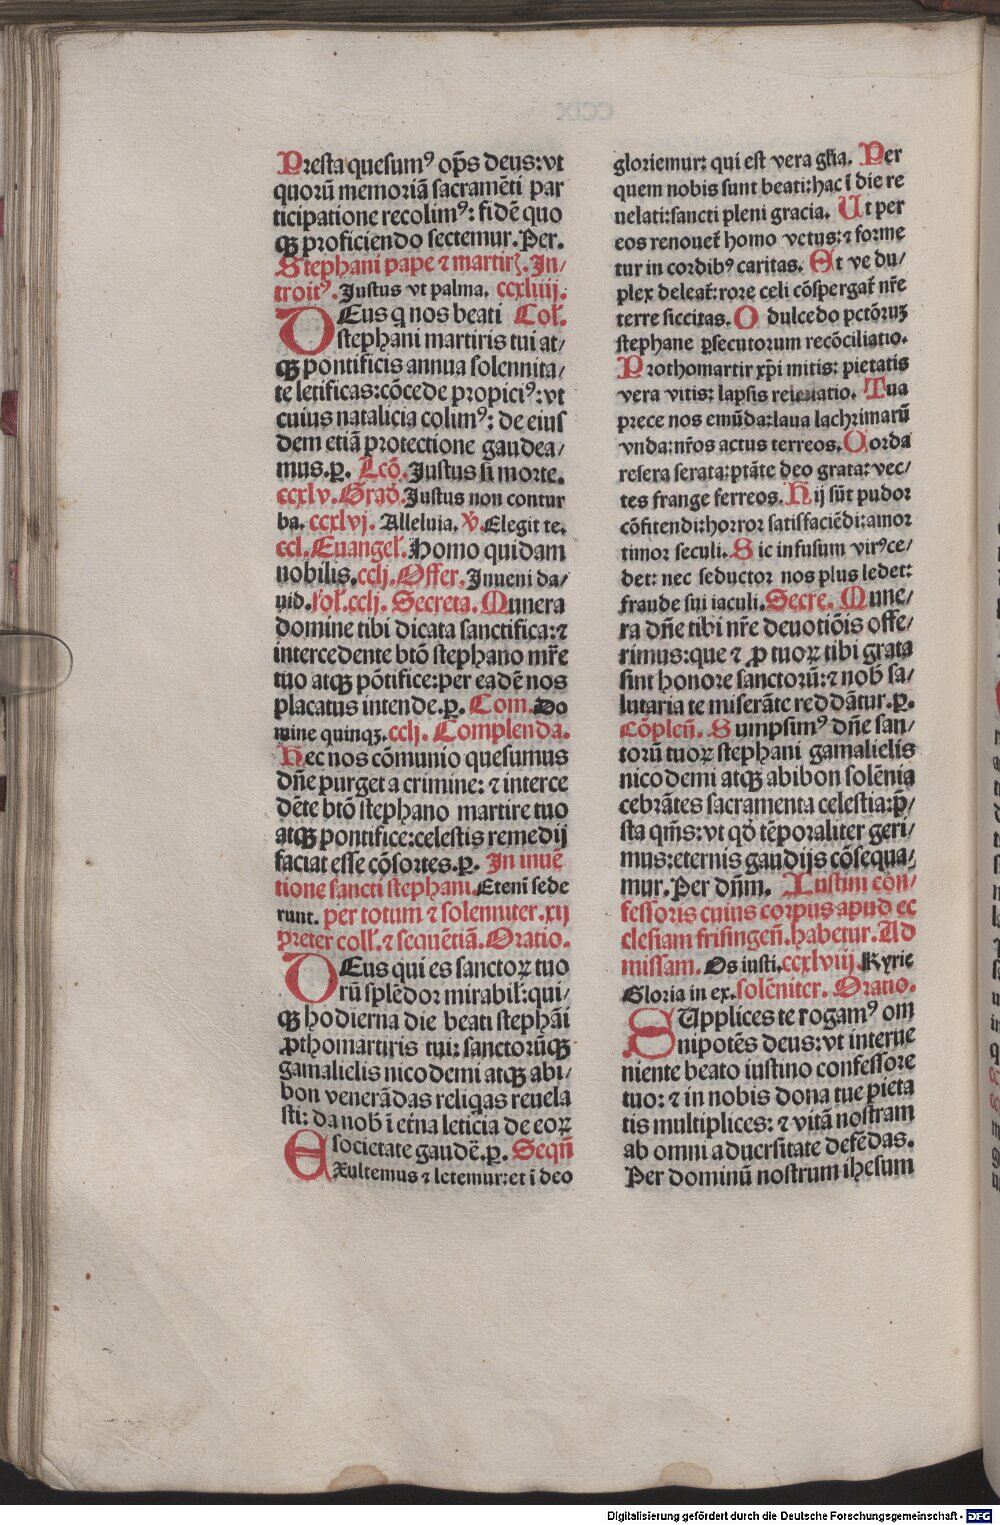 Presta quesumꝰ op̄s deus: vt
quorū memoriā sacramēti par
ticipatione recolimꝰ: fidē quo
qꝫ proficiendo sectemur. Per.
Stephani pape ⁊ martirꝭ. In/
troitꝰ. Justus vt palma. ccxliiij.
DEus q nos beati Col̄.
stephani martiris tui at/
qꝫ pontificis annua solennita/
te letificas: cōcede propiciꝰ: vt
cuius natalicia colimꝰ: de eius
dem etiā protectione gaudea/
mus. ꝑ. Lcō. Justus si morte.
ccxlv. Grad̄. Justus non contur
ba. ccxlvj. Alleluia. ℣. Elegit te.
ccl. Euangel̄. Homo quidam
nobilis. cclj. Offer. Jnueni da/
uid. fol̄. cclj. Secreta. Munera
domine tibi dicata sanctifica: ⁊
intercedente btō stephano mr̄e
tuo atqꝫ pōtifice: per eadē nos
placatus intende. ꝑ. Com. Do
mine quinqꝫ. cclj. Complenda.
Hec nos cōmunio quesumus
dn̄e purget a crimine: ⁊ interce
dēte btō stephano martire tuo
atqꝫ pontifice: celestis remedij
faciat esse cōsortes. ꝑ. In inuē
tione sancti stephani. Etenī sede
runt. per totum ⁊ solenniter. xij
preter coll̄. ⁊ sequētiā. Oratio.
DEus qui es sanctoꝝ tuo
rū splēdor mirabil̄: qui/
qꝫ hodierna die beati stephāi
ꝓthomartiris tui: sanctorūqꝫ
gamalielis nicodemi atqꝫ abi/
bon venerādas reliqas reuela
sti: da nob̄ ī etn̄a leticia de eoꝝ
societate gaudē. ꝑ. Seqn̄
EXultemus ⁊ letemur: et ī deo
gloriemur: qui est vera gl̄ia. Per
quem nobis sunt beati: hac ī die re
uelati: sancti pleni gracia. Ut per
eos renouet̄ homo vetus: ⁊ forme
tur in cordibꝰ caritas. Et ve du/
plex deleat̄: rore celi cōspergat̄ nr̄e
terre siccitas. O dulcedo pctōruꝫ
stephane ꝑsecutorum recōciliatio.
Prothomartir xp̄i mitis: pietatis
vera vitis: lapsis releuatio. Tua
prece nos emūda: laua lachrimarū
vnda: nr̄os actus terreos. Corda
resera serata: ptāte deo grata: vec/
tes frange ferreos. Hij sūt pudor
cōfitendi: horror satisfaciēdi: amor
timor seculi. Sic infusum virꝰ ce/
det: nec seductor nos plus ledet:
fraude sui iaculi. Secre. Mune/
ra dn̄e tibi nr̄e deuotiōis offe/
rimus: que ⁊ ꝓ tuoꝝ tibi grata
sint honore sanctorū: ⁊ nob̄ sa/
lutaria te miserāte reddātur. ꝑ.
Cōplen̄. Sumpsimꝰ dn̄e san/
torū tuoꝝ stephani gamalielis
nicodemi atqꝫ abibon solēnia
cebrātes sacramenta celestia: p̄/
sta qm̄s: vt qd̄ tēporaliter geri/
mus: eternis gaudijs cōsequa/
mur. Per dn̄m. Iustini con/
fessoris cuius corpus apud ec
clesiam frisingen̄. habetur. Ad
missam. Os iusti. ccxlviij. Kyrie
Gloria in ex. solēniter. Oratio.
SUpplices te rogamꝰ om
nipotēs deus: vt interue
niente beato iustino confessore
tuo: ⁊ in nobis dona tue pieta
tis multiplices: ⁊ vitā nostram
ab omni aduersitate defēdas.
Per dominū nostrum ihesum
Digitalisierung gefördert durch die Deutsche Forschungsgemeinschaft - DFG